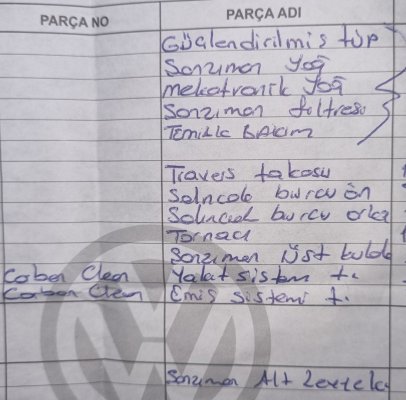 PARÇA NO PARÇA ADI
Güçlendirilmiş tüp
Sanzıman Yağ
mekatronik Yağ
Sanzıman filtresi
Temizlik BAKIm
Travers takozu
Salncak burcu ön
Salncak burcu arka
Tornacı
Sanzıman üst kulak
Carbon Clean Yakıt sistem t.
Carbon Clean Emiş sistemi t.
Sanzıman Alt